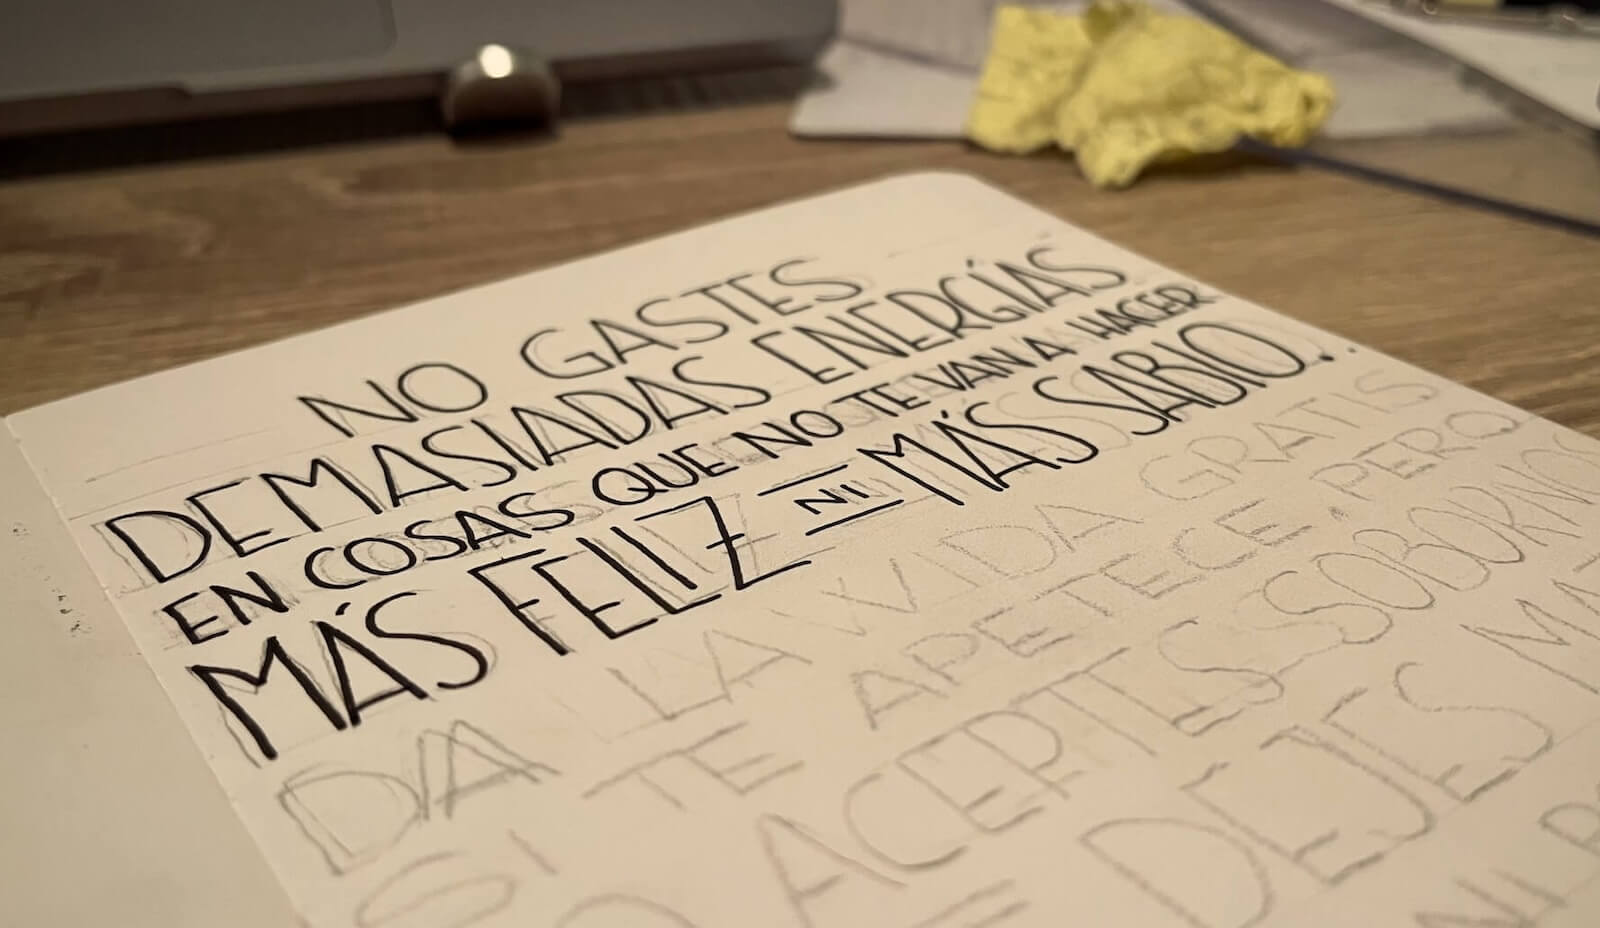 NO GASTES
DEMASIADAS ENERGÍAS
EN COSAS QUE NO TE VAN A HACER
MÁS FELIZ NI MÁS SABIO...
DA LA VIDA GRATIS
SI TE APETECE, PERO
NO ACEPTES SOBORNOS
DEJES
NI